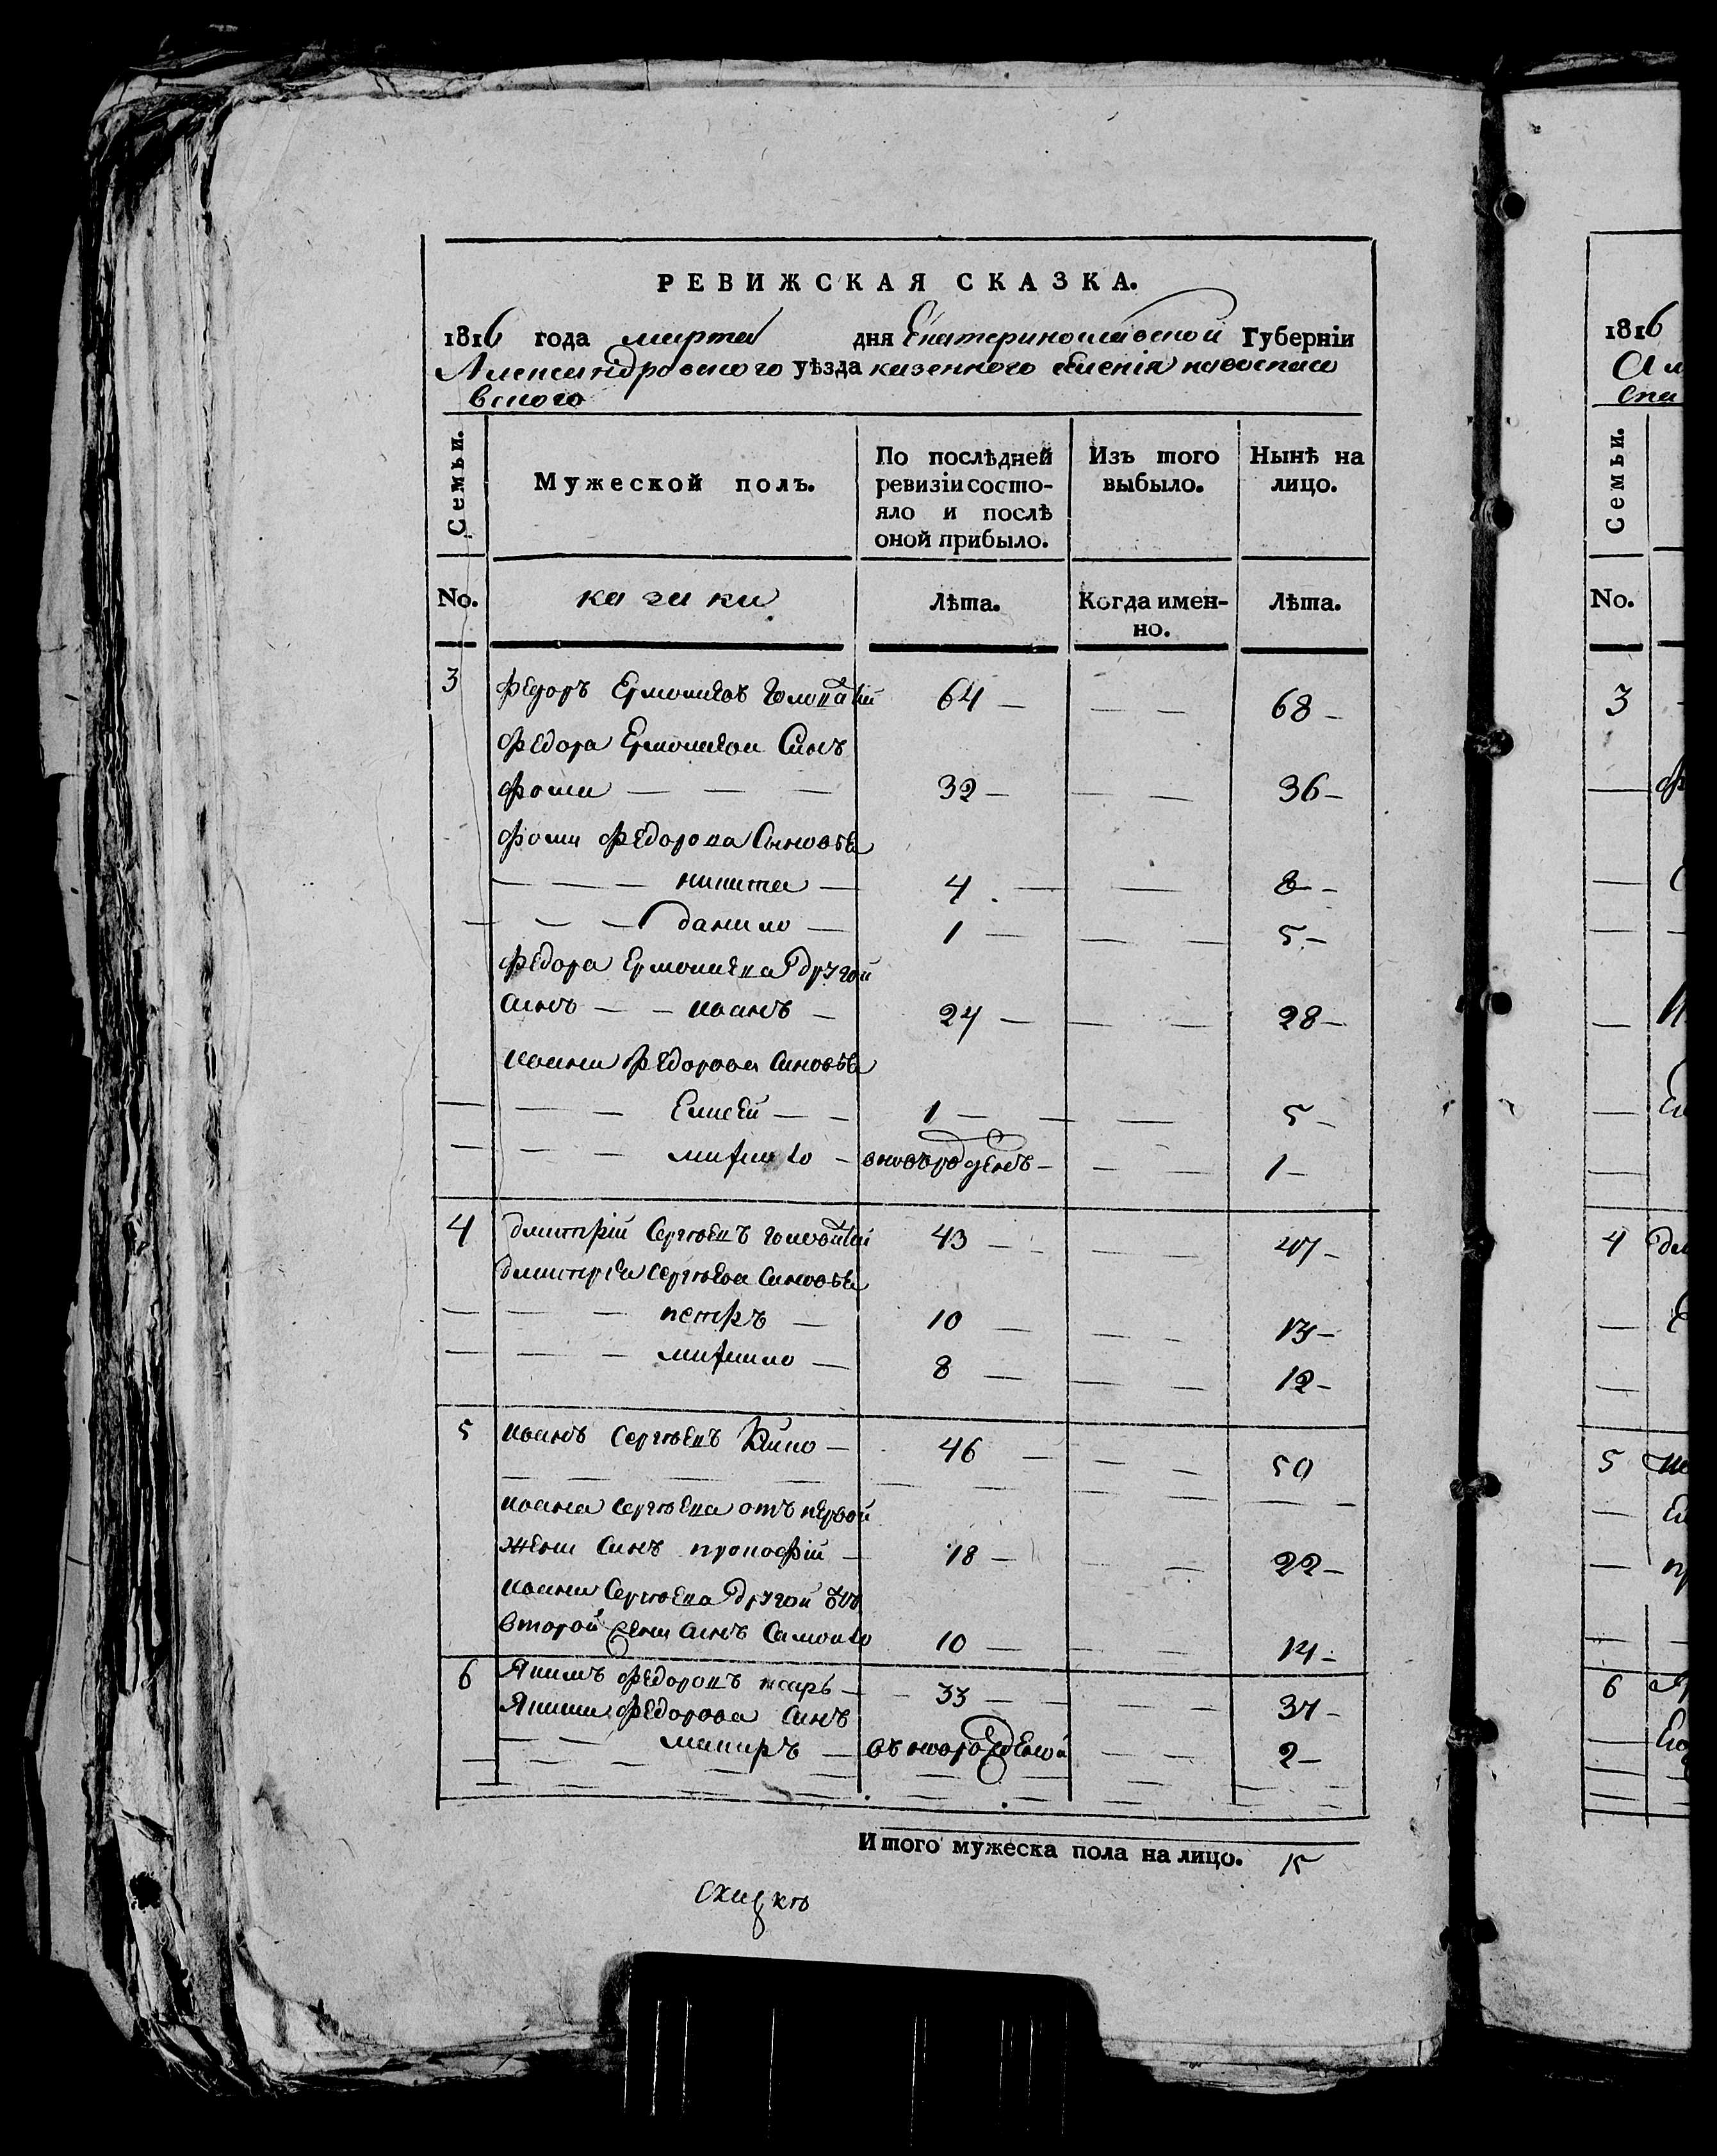 РЕВИЖСКАЯ СКАЗКА.
1816 года марта дня Екатеринославской Губерніи
Александровского уѣзда казенного селенія новоспасо
вского
Семьи.
Мужеской полъ.
По послѣдней ревизіи состо-
яло и послѣ
оной прибыло.
Изъ того
выбыло.
Нынѣ на
лицо.
No.
казаки
Лѣта.
Когда имен-
но.
Лѣта.
3 Федоръ Ермолаевъ 64 — — — 68 —
Федора Ермолаева Синъ
Фома — — — 32 — — — 36 —
Фоми Федорова Сыновѣя
— — — никита — 4 — — 8 —
— — — данило — 1 — — — 5 —
Федора Ермолаева другой
синъ — — иванъ — 24 — — — 28 —
ивана Федорова синовѣя
— — — Елисей — — 1 — — — 5 —
— — — михайло — вновърожденъ — — — 1 —
4 дмитрій Сергѣевъ 43 — — — 47 —
дмитрія сергѣева синовѣя
— — — петръ — 10 — — — 13 —
— — — михаило — 8 — — — 12 —
5 иванъ Сергѣевъ — 46 — — — 50
ивана сергѣева отъ первой
жени синъ прокофій — 18 — — — 22 —
ивана Сергѣева другой отъ
второй жени синъ Самойло 10 — — — 14 —
6 Якимъ Федоровъ — 33 — — — 37 —
Якима Федорова синъ
— — макаръ — въноворожденой — — 2 —
Итого мужеска пола на лицо. 15
1816
Семьи.
No.
3
4
5
6